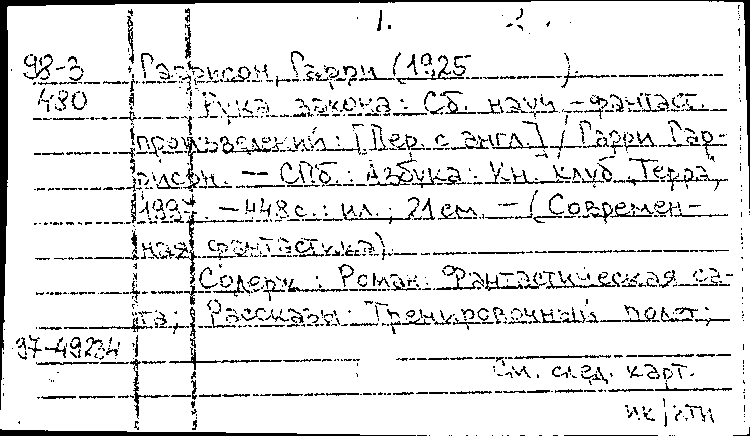 1. 2.
98-3 Гаррисон, Гарри (1925 ).
480 Рука закона: Сб. науч.-фантаст.
произведений: [Пер. с англ.] / Гарри Гар-
рисон. — СПб.: Азбука: Кн. клуб "Терра",
1997. — 448 с.: ил.; 21 см. — (Современ-
ная фантастика).
Содерж.: Роман: Фантастическая са-
га; Рассказы: Тренировочный полет;
97-49234
См. след. карт.